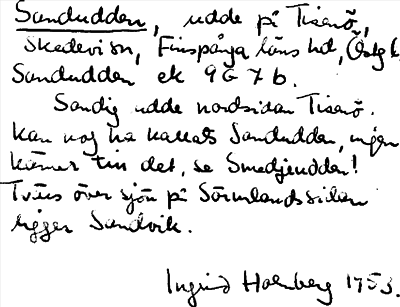 Sandudden, udde på Tisenö,
Skedevi sn, Finspånga läns hd, Östg l.
Sandudden ek 9G 7b.
Sandig udde nordsidan Tisenö.
Kan nog ha kallats Sandudden, ingen
känner till det, se Smedjeudden!
Tvärs över sjön på Sörmlandssidan
ligger Sandvik.
Ingrid 1953.